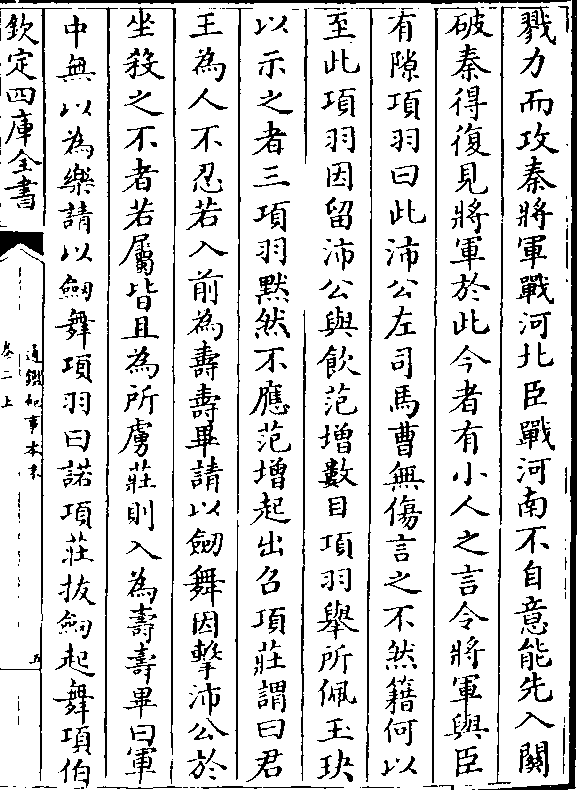 戮力而攻秦將軍戰河北臣戰河南不自意能先入關
破秦得復見將軍於此今者有小人之言令將軍與臣
有隙項羽曰此沛公左司馬曹無傷言之不然籍何以
至此項羽因留沛公與飲范增數目項羽舉所佩玉玦
以示之者三項羽默然不應范增起出召項莊謂曰君
王為人不忍若入前為壽壽畢請以劒舞因擊沛公於
坐殺之不者若屬皆且為所虜莊則入為壽壽畢曰軍
中無以為樂請以劒舞項羽曰諾項莊拔劒起舞項伯
欽定四庫全書
通鑑紀事本末
卷二上
五